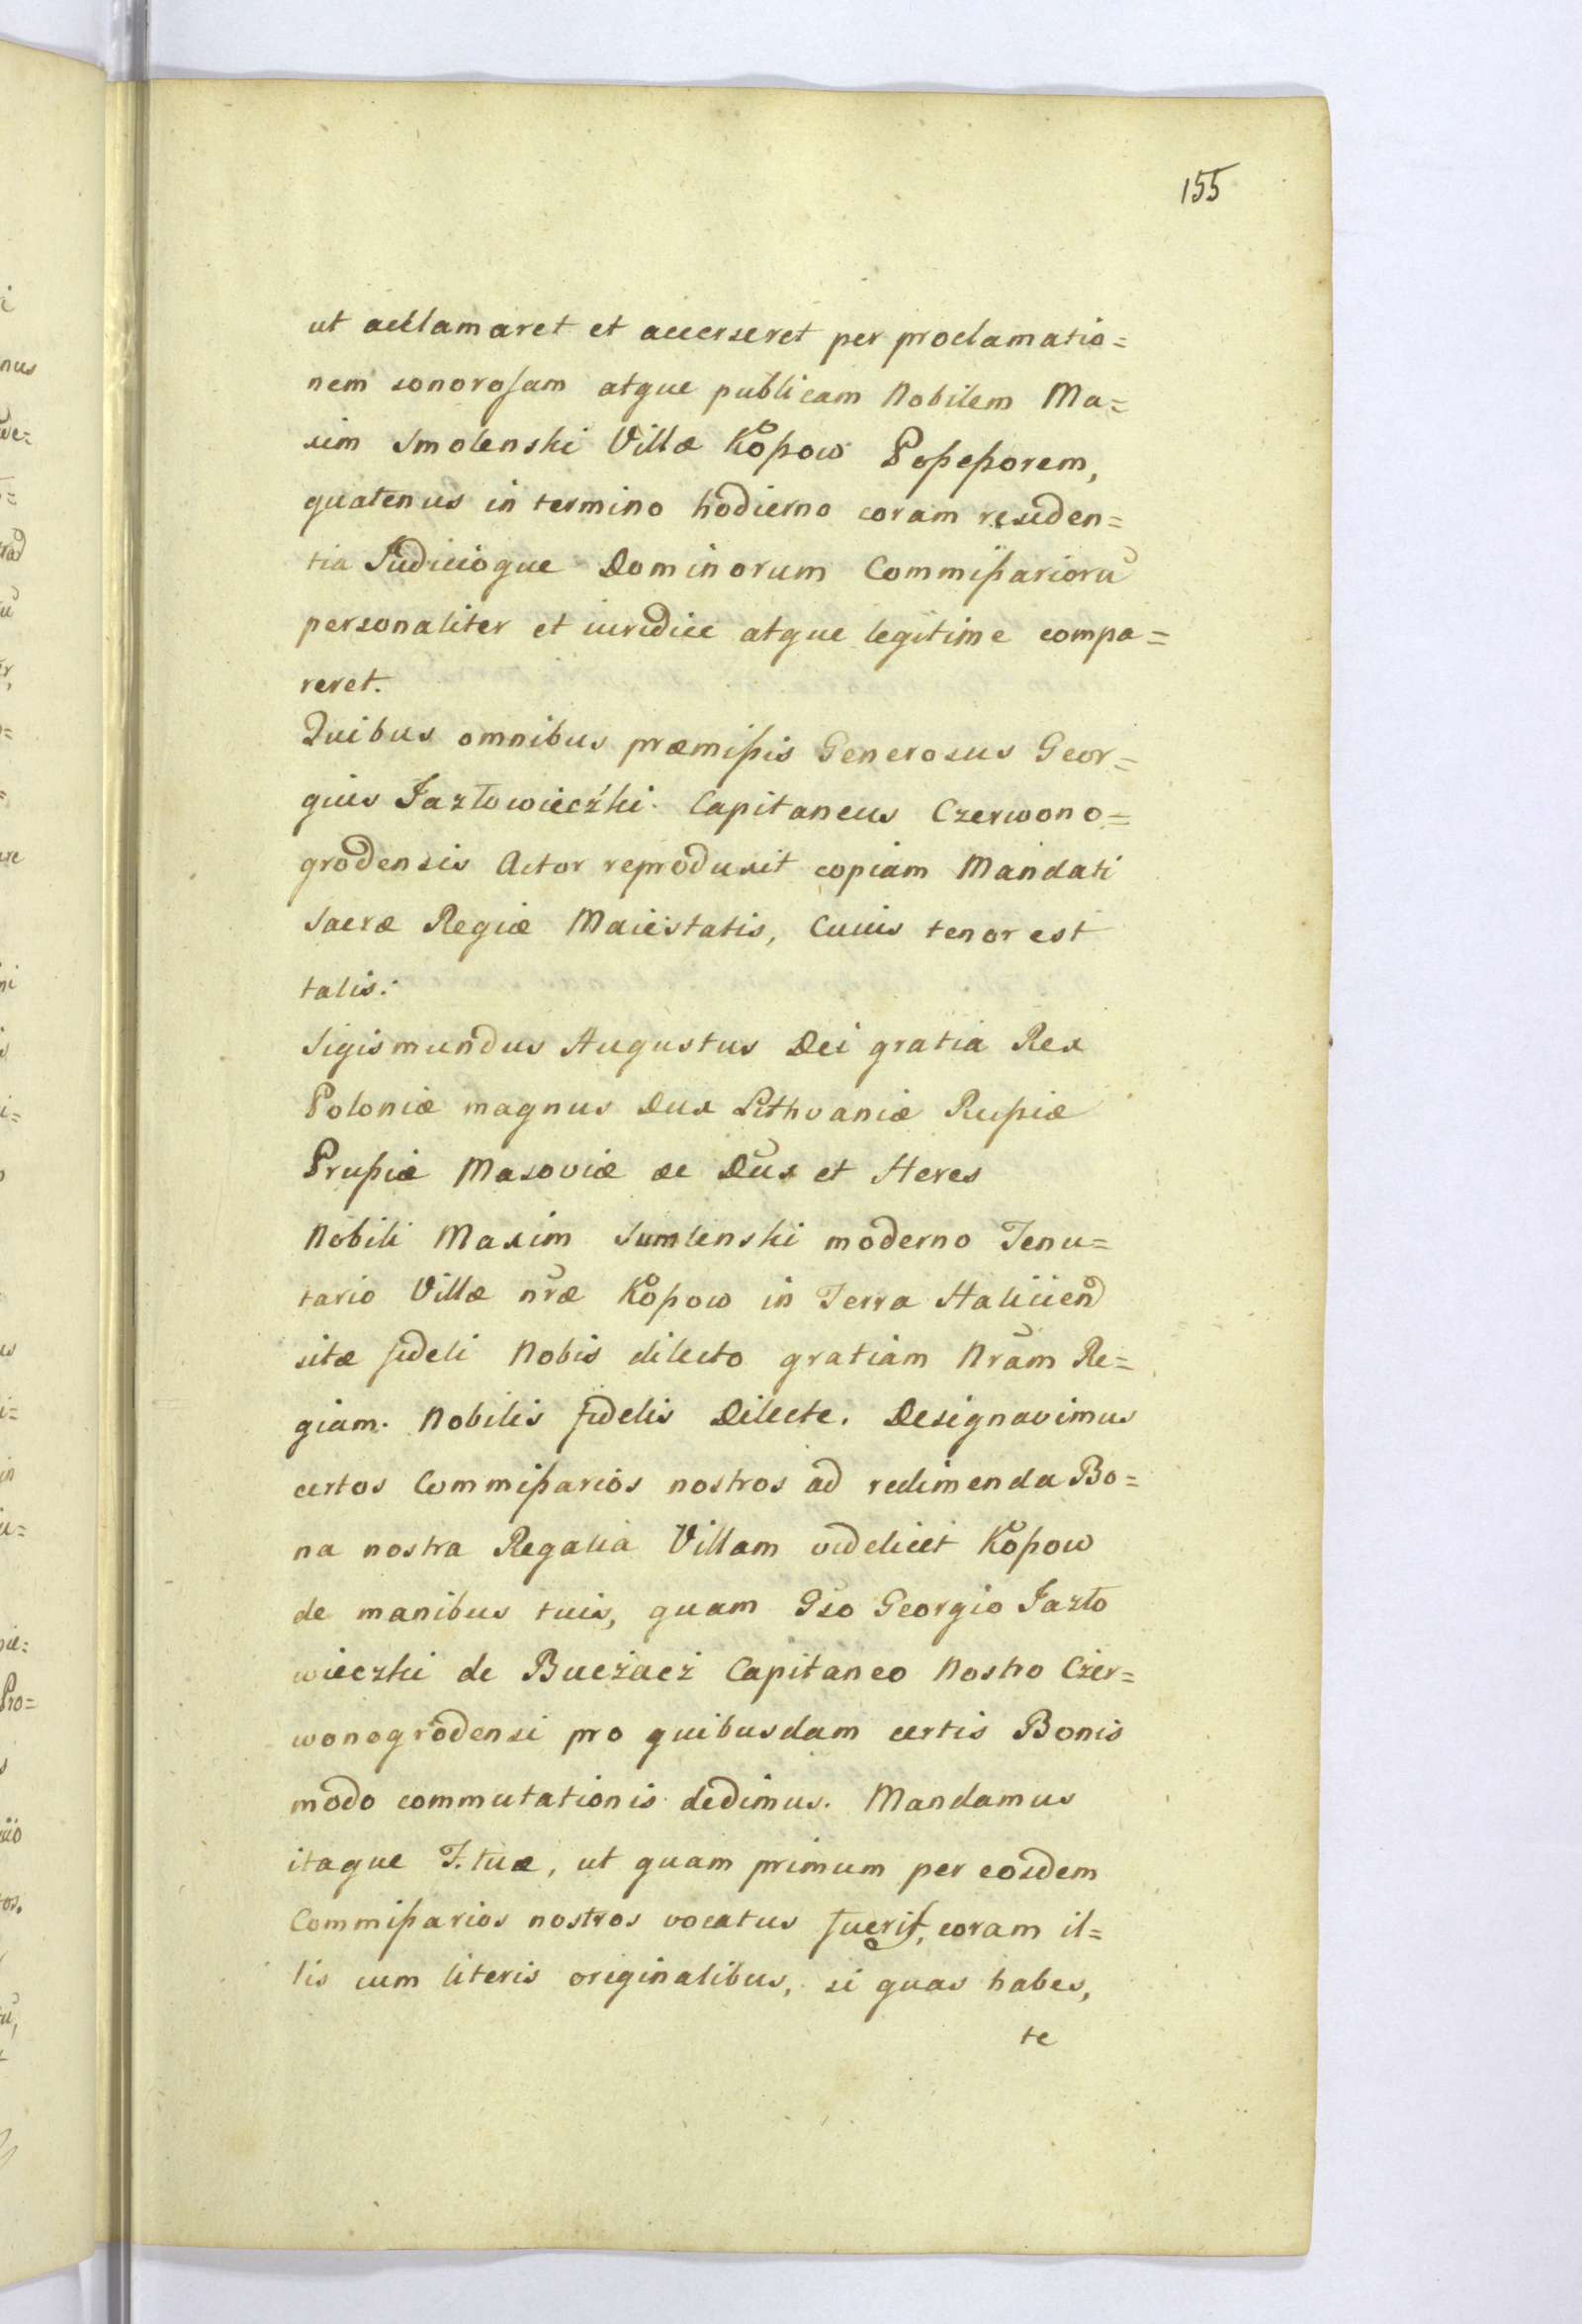 155
ut acclamaret et accerseret per proclamatio=
nem sonorosam atque publicam Nobilem Ma=
xim Smolenski Villæ Kossow Possessorem,
quatenus in termino hodierno coram residen=
tia Judicioque Dominorum Commissariorū
personaliter et iuridice atque legitime compa=
reret.
Quibus omnibus præmissis Generosus Geor=
gius Jazłowieczki Capitaneus Czerwono=
grodensis Actor reproduxit copiam Mandati
Sacræ Regiæ Maiestatis, Cuius tenor est
talis:
Sigismundus Augustus Dei gratia Rex
Poloniæ magnus Dux Lithvaniæ Russiæ
Prussiæ Masoviæ ac Dūs et Heres
Nobili Maxim Sumlenski moderno Tenu=
tario Villæ nr̄æ Kossow in Terra Haliciend
sitæ fideli Nobis dilecto gratiam Nrām Re=
giam. Nobilis fidelis Dilecte. Designavimus
certos Commissarios nostros ad redimenda Bo=
na nostra Regalia Villam videlicet Kossow
de manibus tuis, quam Gso Georgio Jazło
wieczki de Buczacz Capitaneo Nostro Czer=
wonogrodensi pro quibusdam certis Bonis
modo commutationis dedimus. Mandamus
itaque F. tuæ, ut quam primum per eosdem
Commissarios nostros vocatus fueris, coram il=
lis cum literis originalibus, si quas habes,
te